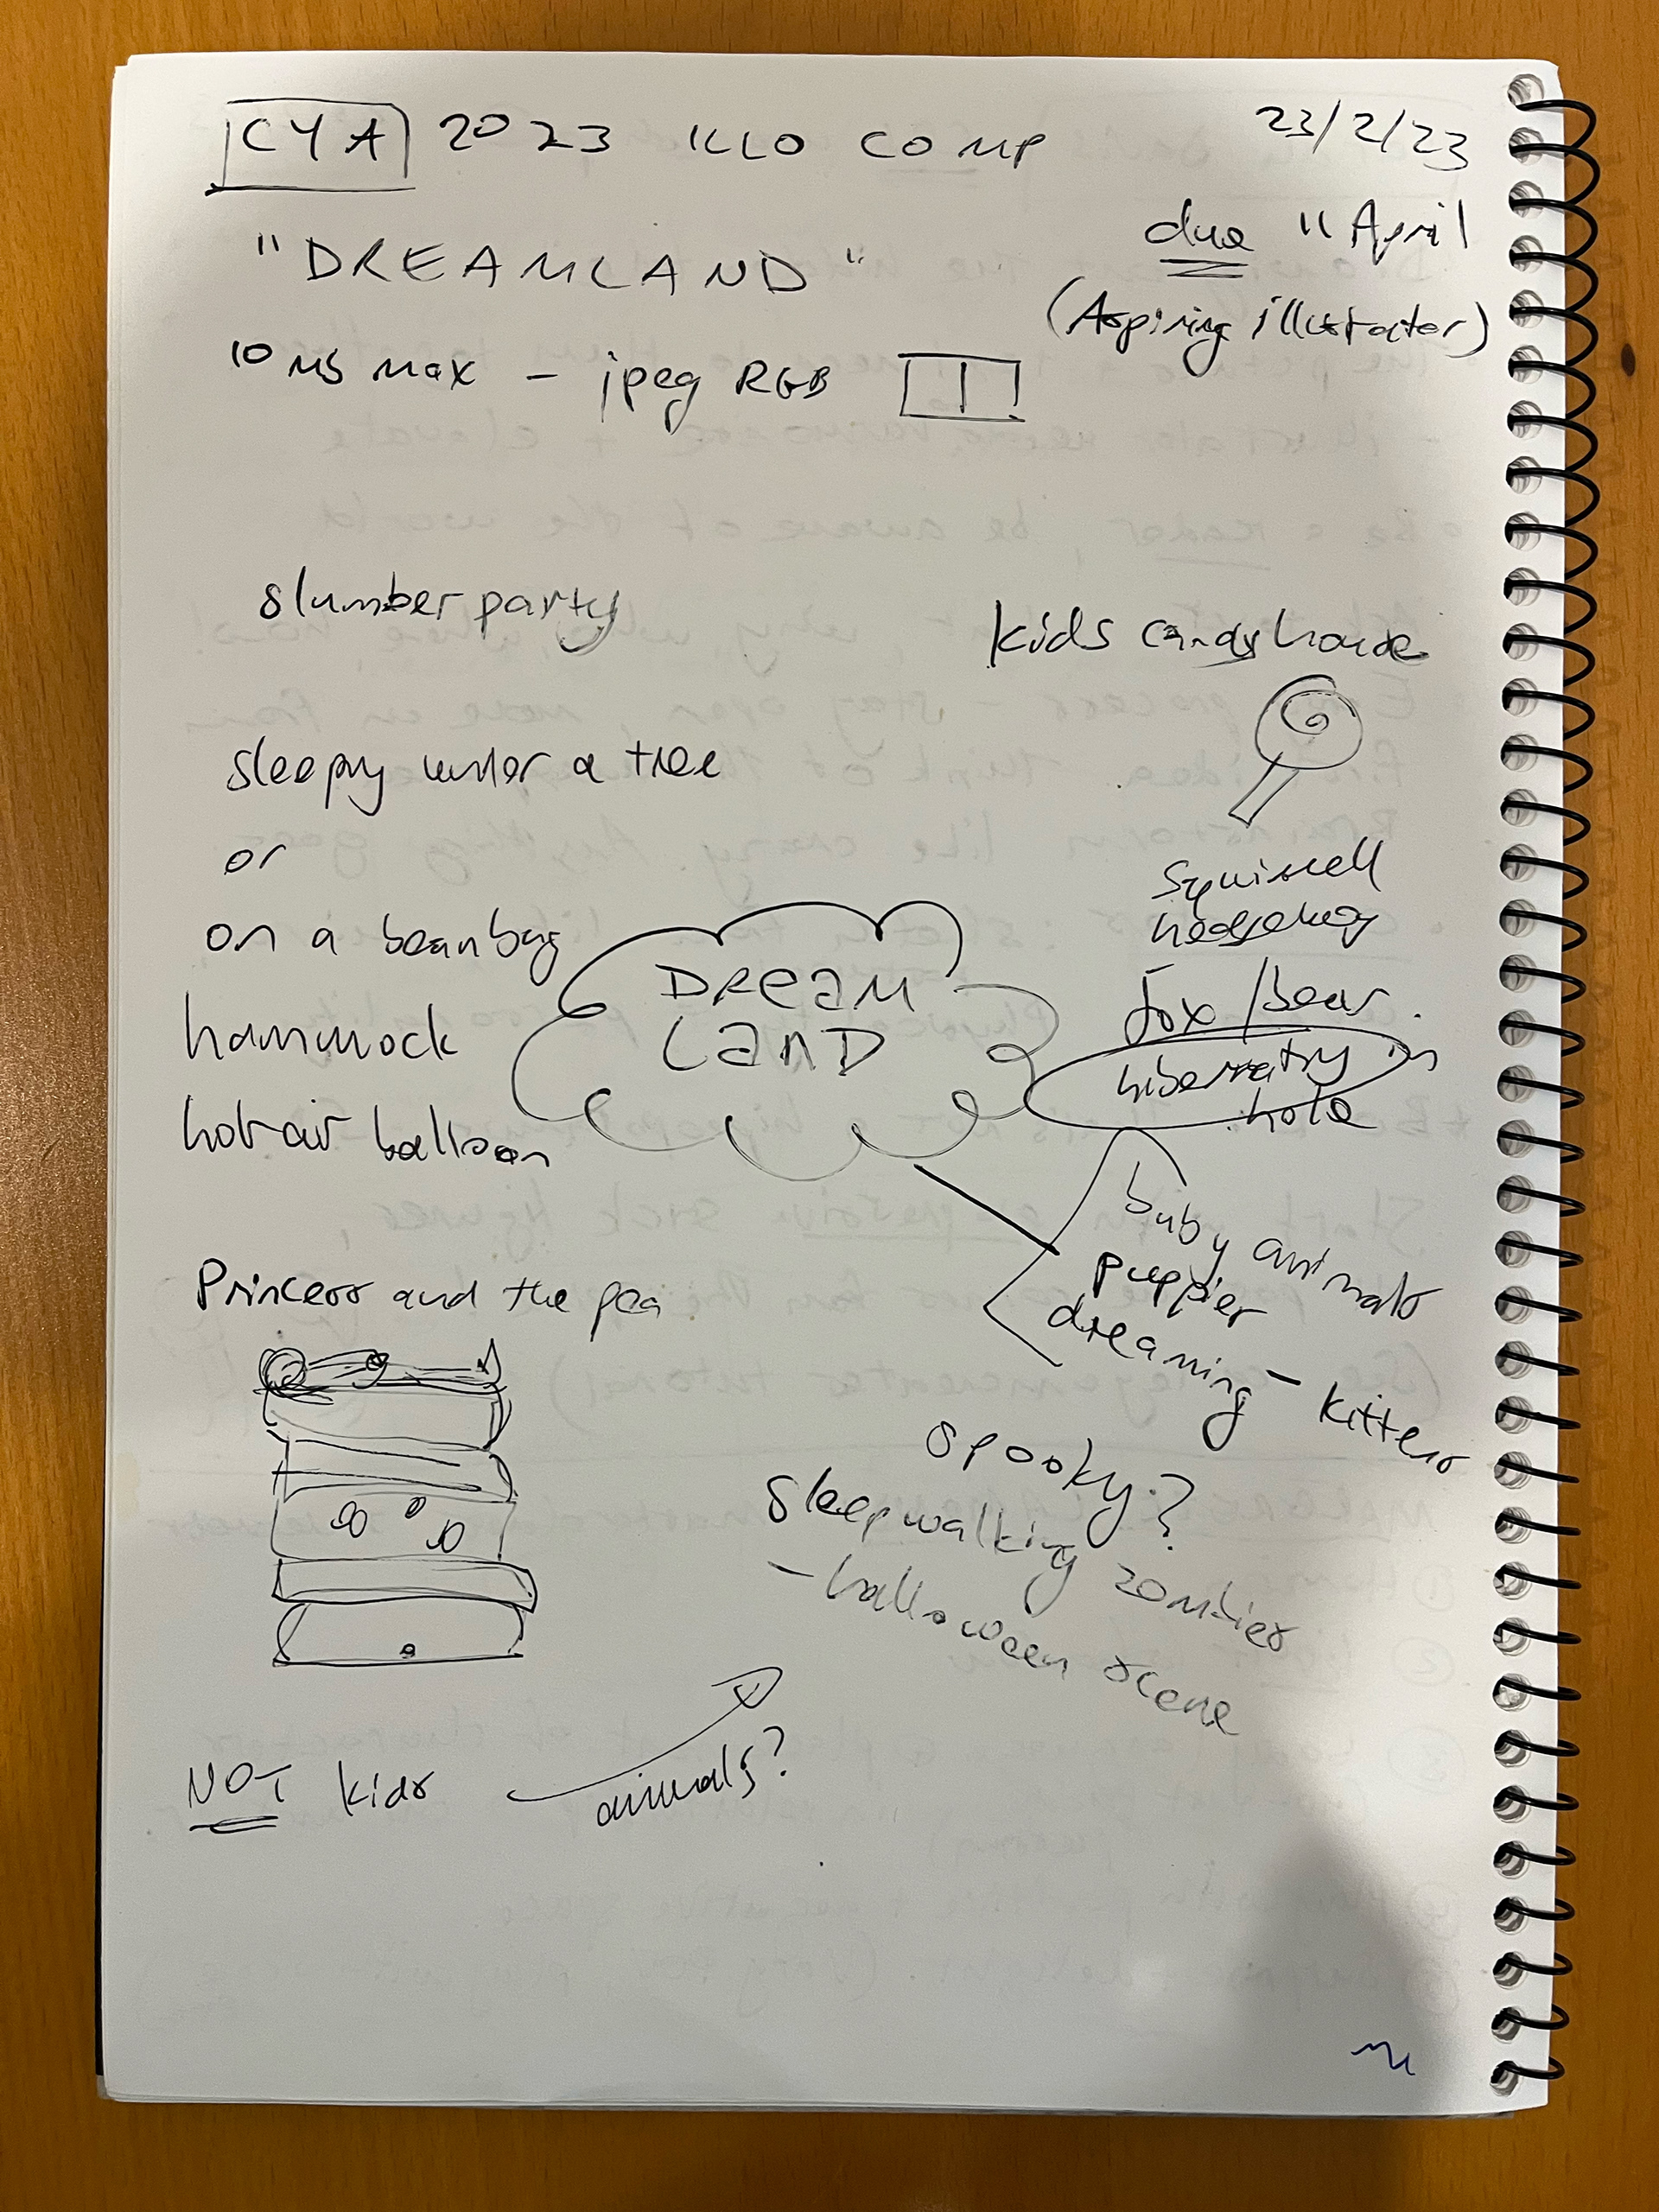 CYA 2023 ILLO COMP
23/2/23
"DREAMLAND"
due 11 April
(Aspiring illustrator)
10 MB MAX - jpeg RGB
slumber party
kids candy house
sleepy under a tree
or
on a beanbag
hammock
hot air balloon
DREAM
LAND
Squirrell
hedgehog
fox/bear
hibernating in
hole
baby animals
puppies
dreaming - kittens
Princess and the pea
spooky?
Sleepwalking zombies
- halloween scene
NOT kids
animals?